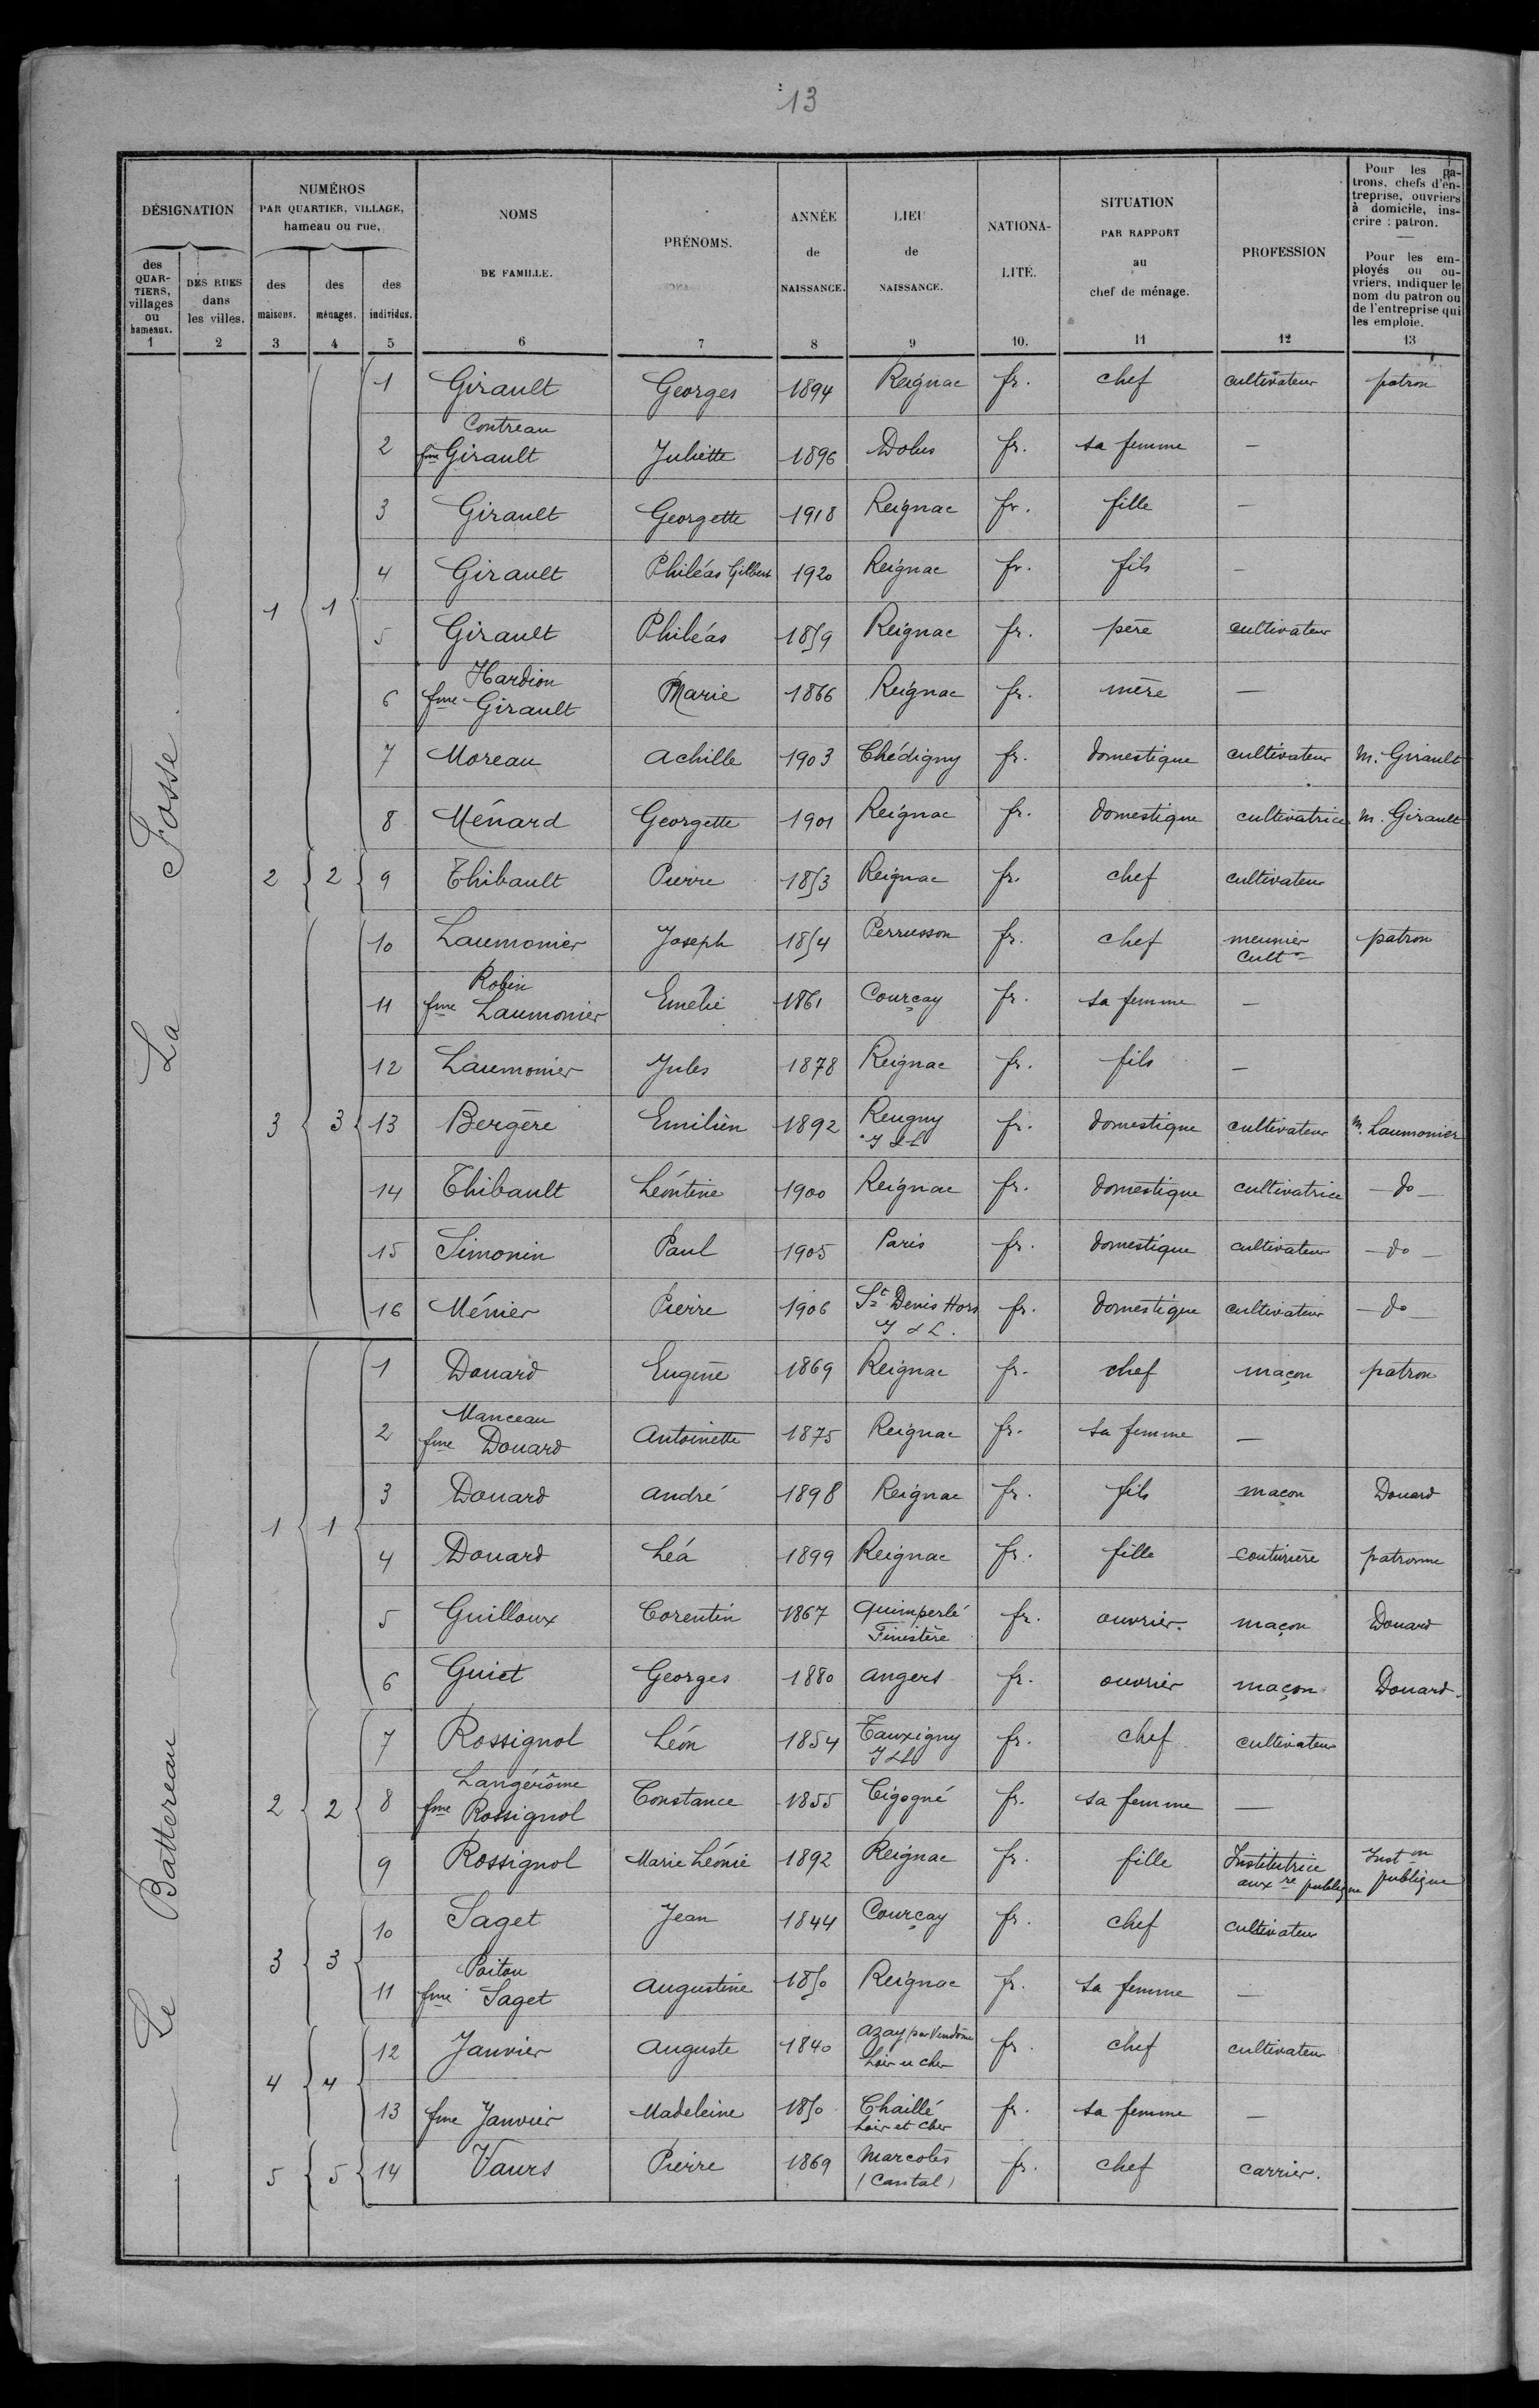 13
DÉSIGNATION
NUMÉROS
PAR QUARTIER, VILLAGE,
hameau ou rue,
NOMS
DE FAMILLE.
PRÉNOMS.
ANNÉE
de
NAISSANCE.
LIEU
de
NAISSANCE.
NATIONA-
LITÉ.
SITUATION
PAR RAPPORT
au
chef de ménage.
PROFESSION
Pour les pa-
trons, chefs d'en-
treprise, ouvriers
à domicile, ins-
crire : patron.
Pour les em-
ployés ou ou-
vriers, indiquer le
nom du patron ou
de l'entreprise qui
les emploie.
des
QUAR-
TIERS,
villages
ou
hameaux.
DES RUES
dans
les villes.
des
maisons.
des
ménages.
des
individus.
1 2 3 4 5 6 7 8 9 10. 11 12 13
La Fosse
1 1
1 Girault Georges 1894 Reignac fr. chef cultivateur patron
Contreau
2 fme Girault Juliette 1896 Dolus fr. sa femme —
3 Girault Georgette 1918 Reignac fr. fille —
4 Girault Philéas Gilbert 1920 Reignac fr. fils —
5 Girault Philéas 1859 Reignac fr. père cultivateur
Hardion
6 fme Girault Marie 1866 Reignac fr. mère —
7 Moreau Achille 1903 Chédigny fr. domestique cultivateur M. Girault
8 Ménard Georgette 1901 Reignac fr. domestique cultivatrice M. Girault
2 2 9 Thibault Pierre 1853 Reignac fr. chef cultivateur
3 3
10 Laumonier Joseph 1854 Perrusson fr. chef meunier patron
cultr
Robin
11 fme Laumonier Emélie 1861 Courçay fr. sa femme —
12 Laumonier Jules 1878 Reignac fr. fils —
13 Bergère Emilien 1892 Reugny fr. domestique cultivateur M. Laumonier
I & L
14 Thibault Léontine 1900 Reignac fr. domestique cultivatrice — do —
15 Simonin Paul 1905 Paris fr. domestique cultivateur — do —
16 Ménier Pierre 1906 St Denis Hors fr. domestique cultivateur — do —
I & L.
Le Battereau
1 1
1 Douard Eugène 1869 Reignac fr. chef maçon patron
Manceau
2 fme Douard Antoinette 1875 Reignac fr. sa femme —
3 Douard André 1898 Reignac fr. fils maçon Douard
4 Douard Léa 1899 Reignac fr. fille couturière patronne
5 Guilloux Corentin 1867 Quimperlé fr. ouvrier. maçon Douard
Finistère
6 Guiet Georges 1880 Angers fr. ouvrier maçon Douard.
2 2
7 Rossignol Léon 1854 Tauxigny fr. chef cultivateur
I & L
Langérôme
8 fme Rossignol Constance 1855 Cigogné fr. sa femme —
9 Rossignol Marie Léonie 1892 Reignac fr. fille Institutrice Inston
auxre publique publique
3 3
10 Saget Jean 1844 Courçay fr. chef cultivateur
Poitou
11 fme Saget Augustine 1850 Reignac fr. sa femme —
4 4
12 Janvier Auguste 1840 Azay par Vendôme fr. chef cultivateur
Loir et Cher
13 fme Janvier Madeleine 1850 Chaillé fr. sa femme —
Loir et Cher
5 5 14 Vaurs Pierre 1869 Marcolès fr. chef carrier.
(Cantal)